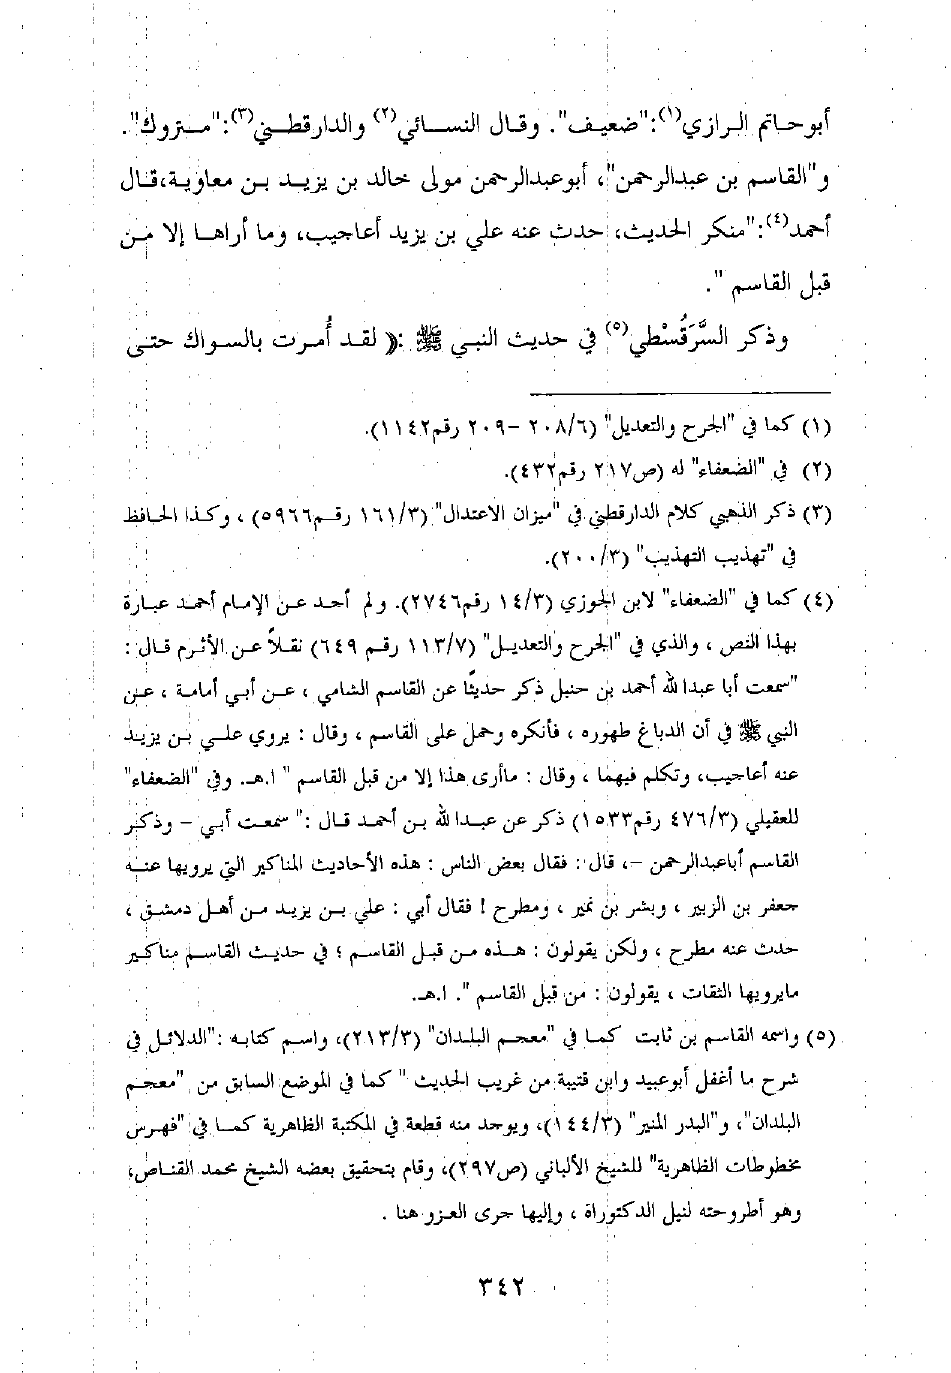 أبوحاتم الرازي(١):"ضعيف". وقال النسائي(٢) والدارقطني(٣):"متروك".
و"القاسم بن عبدالرحمن"، أبوعبدالرحمن مولى خالد بن يزيد بن معاوية،قال
أحمد(٤):"منكر الحديث، حدث عنه علي بن يزيد أعاجيب، وما أراها إلا من
قبل القاسم ".
وذكر السَّرَقُسْطي(٥) في حديث النبي ﷺ :﴿ لقد أُمرت بالسواك حتى
(١) كما في "الجرح والتعديل" (٢٠٨/٦ –٢٠٩ رقم١١٤٢).
(٢) في "الضعفاء" له (ص٢١٧ رقم٤٣٢).
(٣) ذكر الذهبي كلام الدارقطني في "ميزان الاعتدال" (١٦١/٣ رقم٥٩٦٦) ، وكذا الحافظ
في "تهذيب التهذيب" (٢٠٠/٣).
(٤) كما في "الضعفاء" لابن الجوزي (١٤/٣ رقم٢٧٤٦). ولم أجد عن الإمام أحمد عبارة
بهذا النص ، والذي في "الجرح والتعديل" (١١٣/٧ رقم ٦٤٩) نقلاً عن الأثرم قال :
"سمعت أبا عبدا لله أحمد بن حنبل ذكر حديثًا عن القاسم الشامي ، عن أبي أمامة ، عن
النبي ﷺ في أن الدباغ طهوره ، فأنكره وحمل على القاسم ، وقال : يروي علي بن يزيد
عنه أعاجيب، وتكلم فيهما ، وقال : ماأرى هذا إلا من قبل القاسم " ا.هـ. وفي "الضعفاء"
للعقيلي (٤٧٦/٣ رقم١٥٣٣) ذكر عن عبدا لله بن أحمد قال :" سمعت أبي – وذكر
القاسم أباعبدالرحمن –، قال : فقال بعض الناس : هذه الأحاديث المناكير التي يرويها عنه
جعفر بن الزبير ، وبشر بن نمير ، ومطرح ! فقال أبي : علي بن يزيد من أهل دمشق ،
حدث عنه مطرح ، ولكن يقولون : هذه من قبل القاسم ؛ في حديث القاسم مناكير
مايرويها الثقات ، يقولون : من قبل القاسم ". ا.هـ.
(٥) واسمه القاسم بن ثابت كما في "معجم البلدان" (٢١٣/٣)، واسم كتابه :"الدلائل في
شرح ما أغفل أبوعبيد وابن قتيبة من غريب الحديث " كما في الموضع السابق من "معجم
البلدان"، و"البدر المنير" (١٤٤/٣)، ويوجد منه قطعة في المكتبة الظاهرية كما في "فهرس
مخطوطات الظاهرية" للشيخ الألباني (ص٢٩٧)، وقام بتحقيق بعضه الشيخ محمد القناص،
وهو أطروحته لنيل الدكتوراة ، وإليها جرى العزو هنا .
٣٤٢